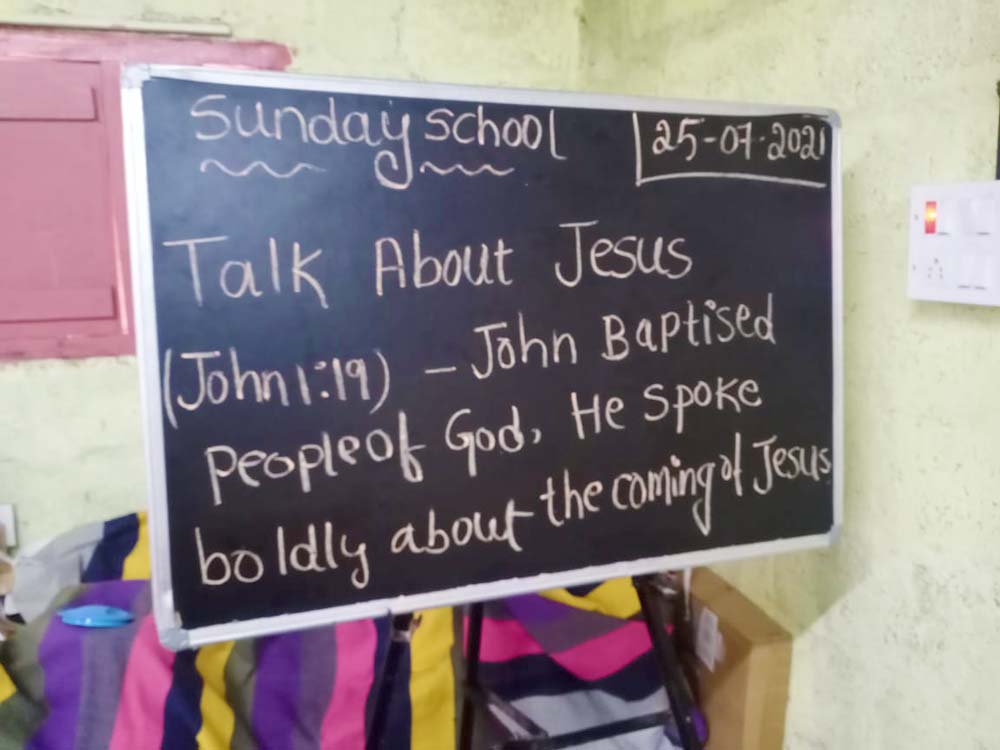 Sunday School
25-07-2021
Talk About Jesus
(John 1:19) – John Baptised
people of God, He spoke
boldly about the coming of Jesus.